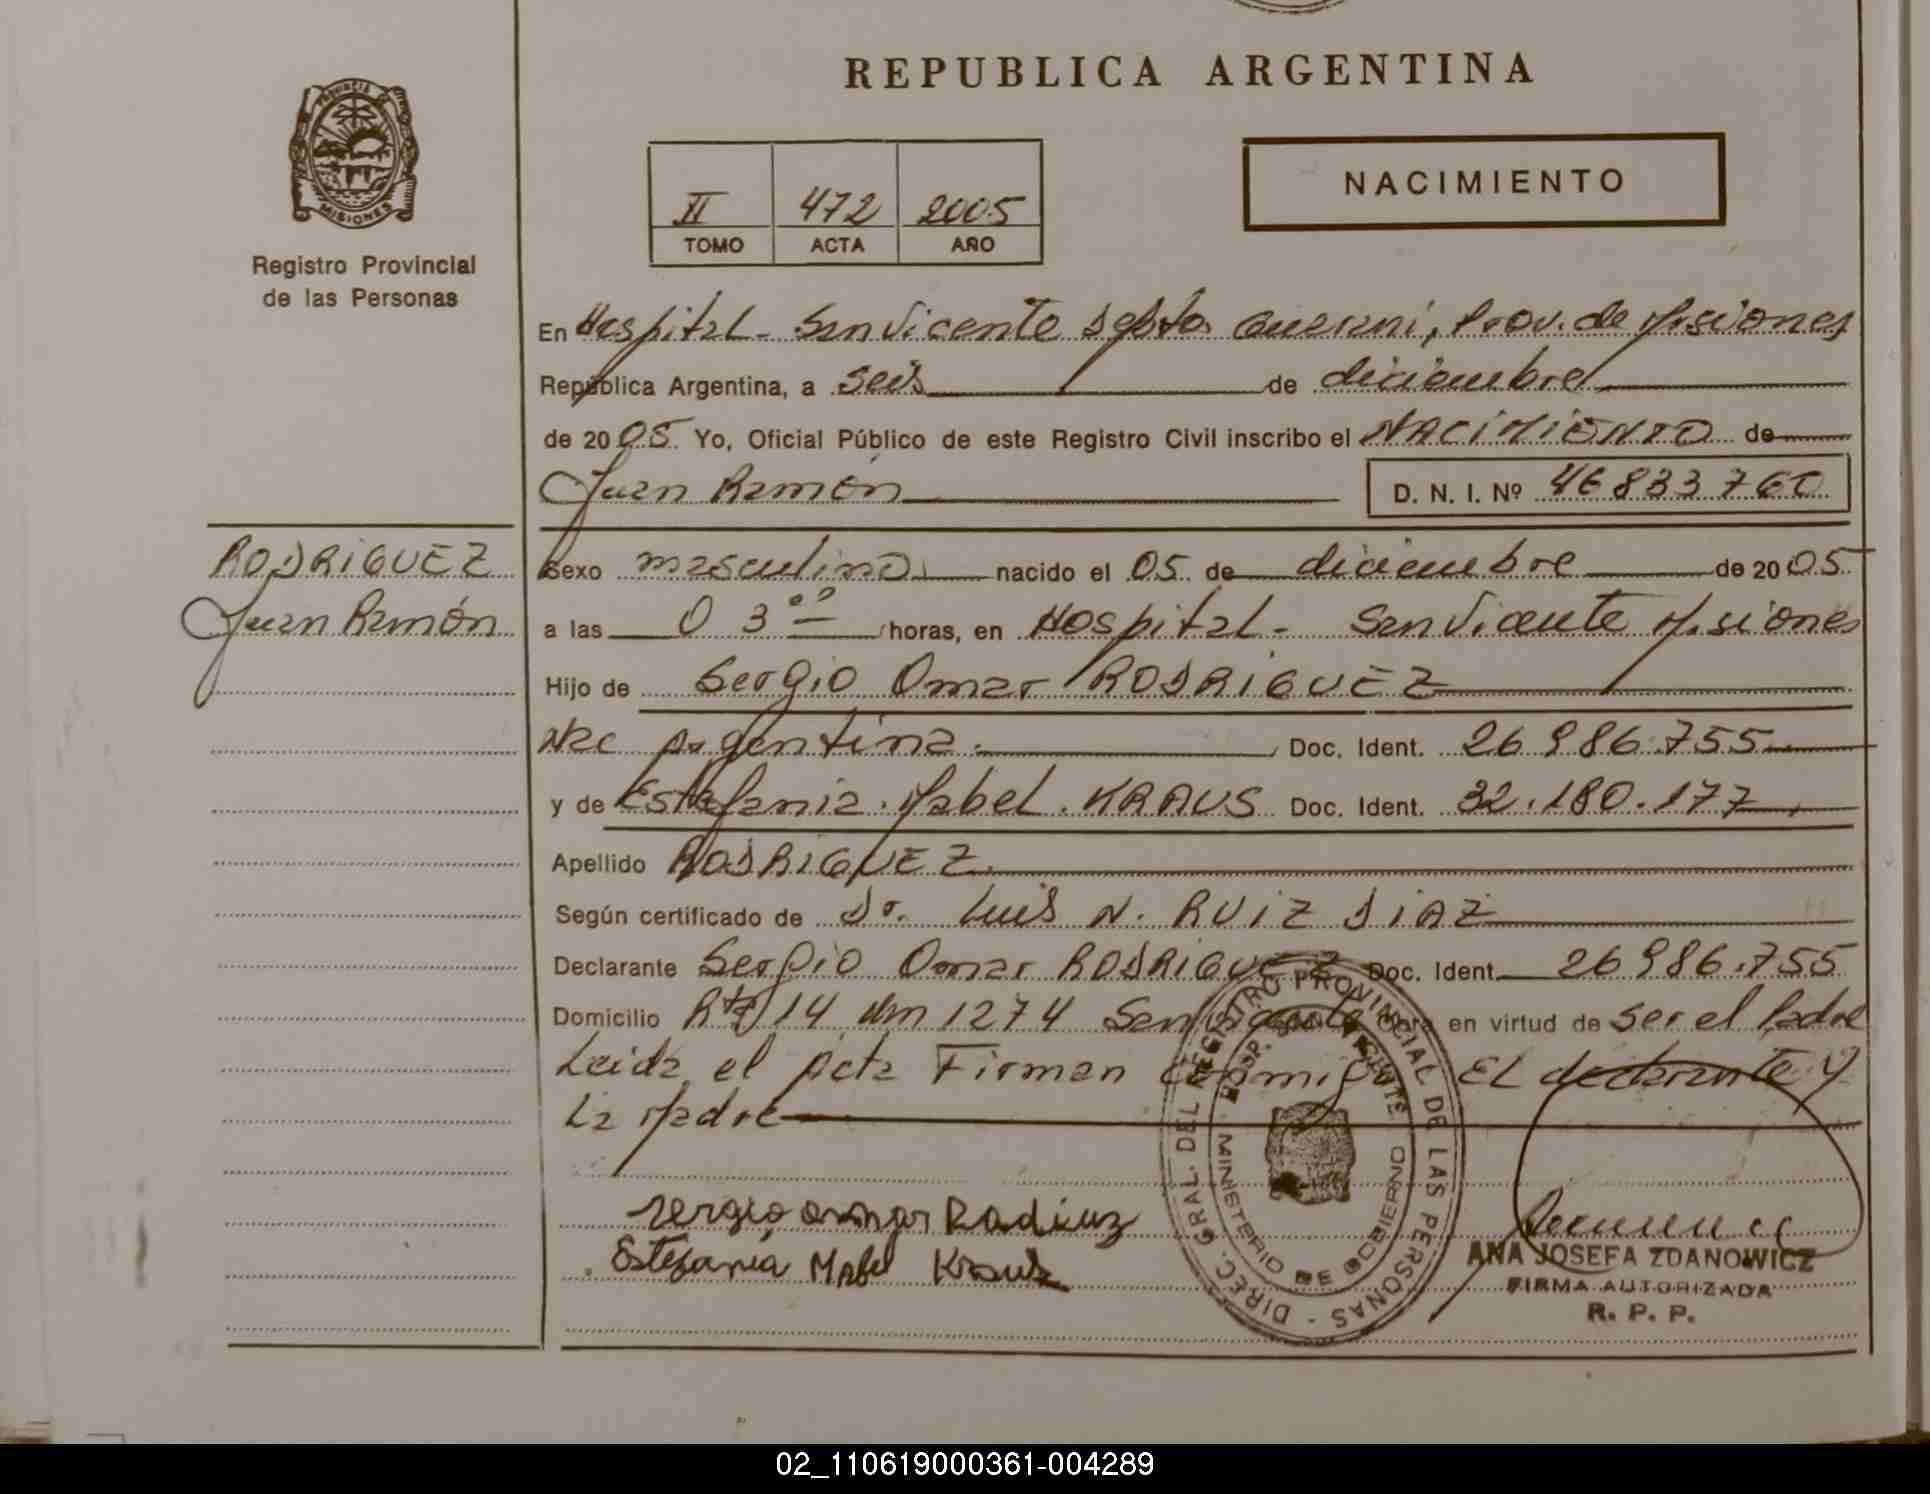 REPUBLICA ARGENTINA
PROVINCIA DE
MISIONES
Registro Provincial
de las Personas
II 472 2005
TOMO ACTA AÑO
NACIMIENTO
En Hospital - San Vicente Dpto. Guaraní, Prov. de Misiones
República Argentina, a seis de diciembre
de 2005 Yo, Oficial Público de este Registro Civil inscribo el NACIMIENTO de
Juan Ramón
D. N. I. Nº 46833760
RODRIGUEZ
Juan Ramón
Sexo masculino nacido el 05 de diciembre de 2005
a las 03 00 horas, en Hospital - San Vicente Misiones
Hijo de Sergio Omar RODRIGUEZ
Nac Argentina. Doc. Ident. 26986.755
y de Estefania Mabel KRAUS Doc. Ident. 32.180.177
Apellido RODRIGUEZ
Según certificado de Dr. Luis N. RUIZ DIAZ
Declarante Sergio Omar RODRIGUEZ Doc. Ident. 26986.755
Domicilio Rta 14 Km 1274 San Vicente Obra en virtud de ser el Padre
Leida el Acta Firman conmigo El declarante y
La Madre
Sergio omar Radiuz
Estefania Mabel Kraus
DIREC. GRAL. DEL REGISTRO PROVINCIAL DE LAS PERSONAS -
HOSP. SAN VICENTE
MINISTERIO DE GOBIERNO
ANA JOSEFA ZDANOWICZ
FIRMA AUTORIZADA
R. P. P.
02_110619000361-004289